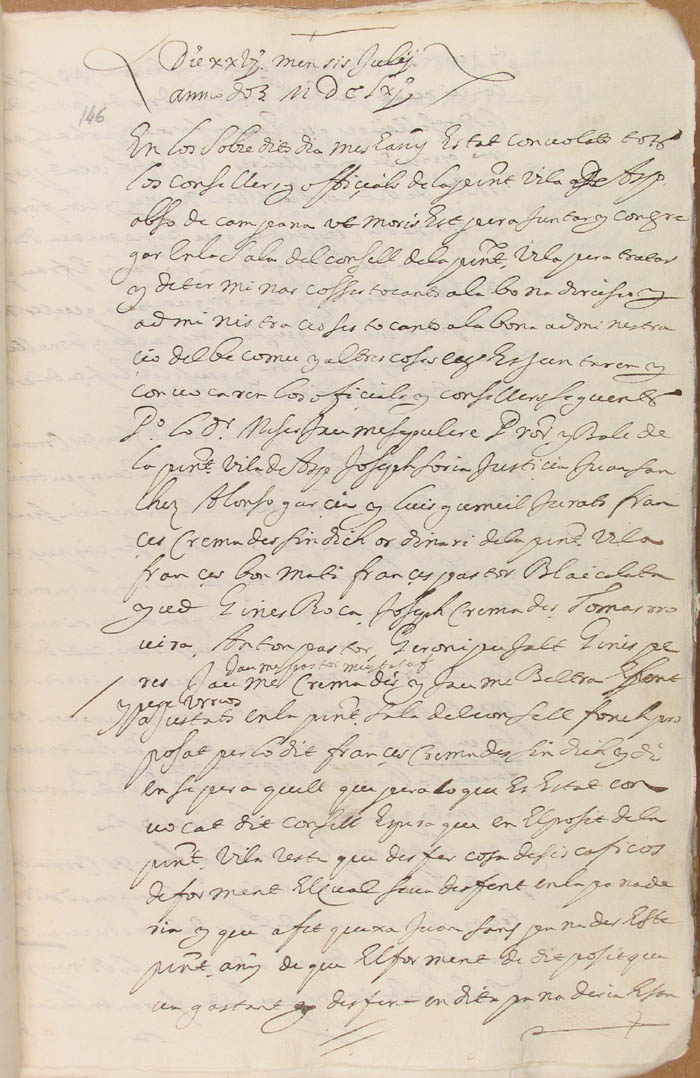 Die xxvj. mensis Julij
anno do&#x305; M D C Lx j
146
En los Sobre dits dia mes E any Estat convocats tots
los consellers y officials de la pnt. vila de Asp
abso de campana ut moris Est pera Juntar y congre
gar En la Sala del consell de la pnt. vila pera tratar
y determinar cosses tocants a la bona direcsio y
administracio ses tocants a la bona administra
cio del be comu y altres coses es Es juntaren y
convocaren los oficials y consellers seguents
Po. lo Dr. Miser Jaume sepulcre Pror. y Bale de
la pnt. vila de Asp Joseph Soria Justicia Juan san
chez Alonso garcia y luis gumeil Jurats fran
ces Cremades sindich ordinari de la pnt. vila
frances bon mati frances pastor Blai calata
yued Gines Roca Joseph Cremades Tomas ro
veira, Anton pastor, Geroni pujalt Ginis pe
res Jaume Cremades y Jaume Beltra Esent
Jaume pastor mustasaf
y pere Urios
ajustats en la pnt. sala del consell fonch pro
posat per lo dit frances Cremades sindich y di
en se pera quell que pera lo que Es Estat con
vocat dit consell Es pera que en El posit de la
pnt. vila resta que desfer cosa de sis caficos
de forment El qual se va desfent en la panade
ria y que a fet quexa Juan sans panader Este
pnt. any de que El forment de dit posit que
va gastant y desfent en dita panaderia Es on